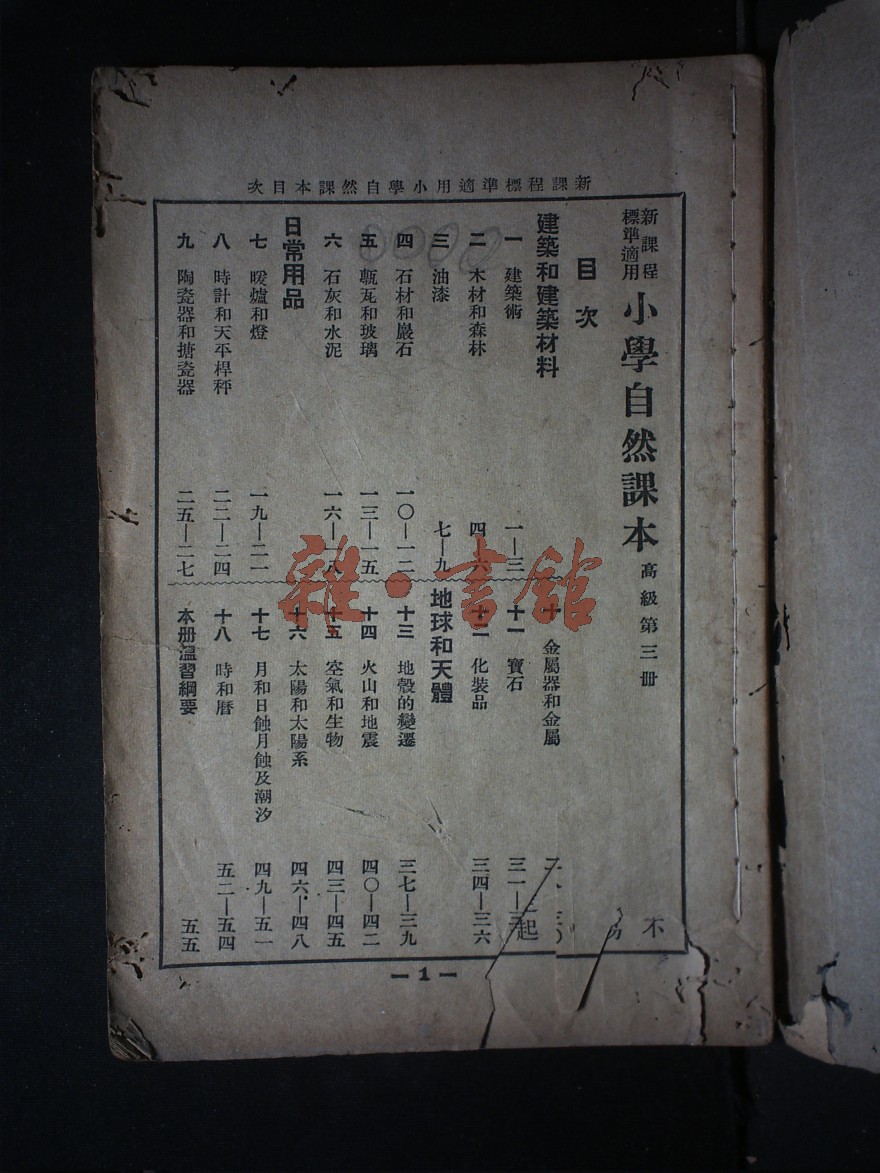 新課程標準適用小學自然課本目次
新課程
標準適用
小學自然課本
高級第三册
目次
建築和建築材料
一 建築術 一—三
二 木材和森林 四—六
三 油漆 七—九
四 石材和巖石 一〇—一二
五 甎瓦和玻璃 一三—一五
六 石灰和水泥 一六—一八
日常用品
七 暖爐和燈 一九—二一
八 時計和天平桿秤 二二—二四
九 陶瓷器和搪瓷器 二五—二七
十 金屬器和金屬
十一 寶石 三一—
十二 化裝品 三四—三六
地球和天體
十三 地殼的變遷 三七—三九
十四 火山和地震 四〇—四二
十五 空氣和生物 四三—四五
十六 太陽和太陽系 四六—四八
十七 月和日蝕月蝕及潮汐 四九—五一
十八 時和曆 五二—五四
本册溫習綱要 五五
—1—
起
不
雜·書館